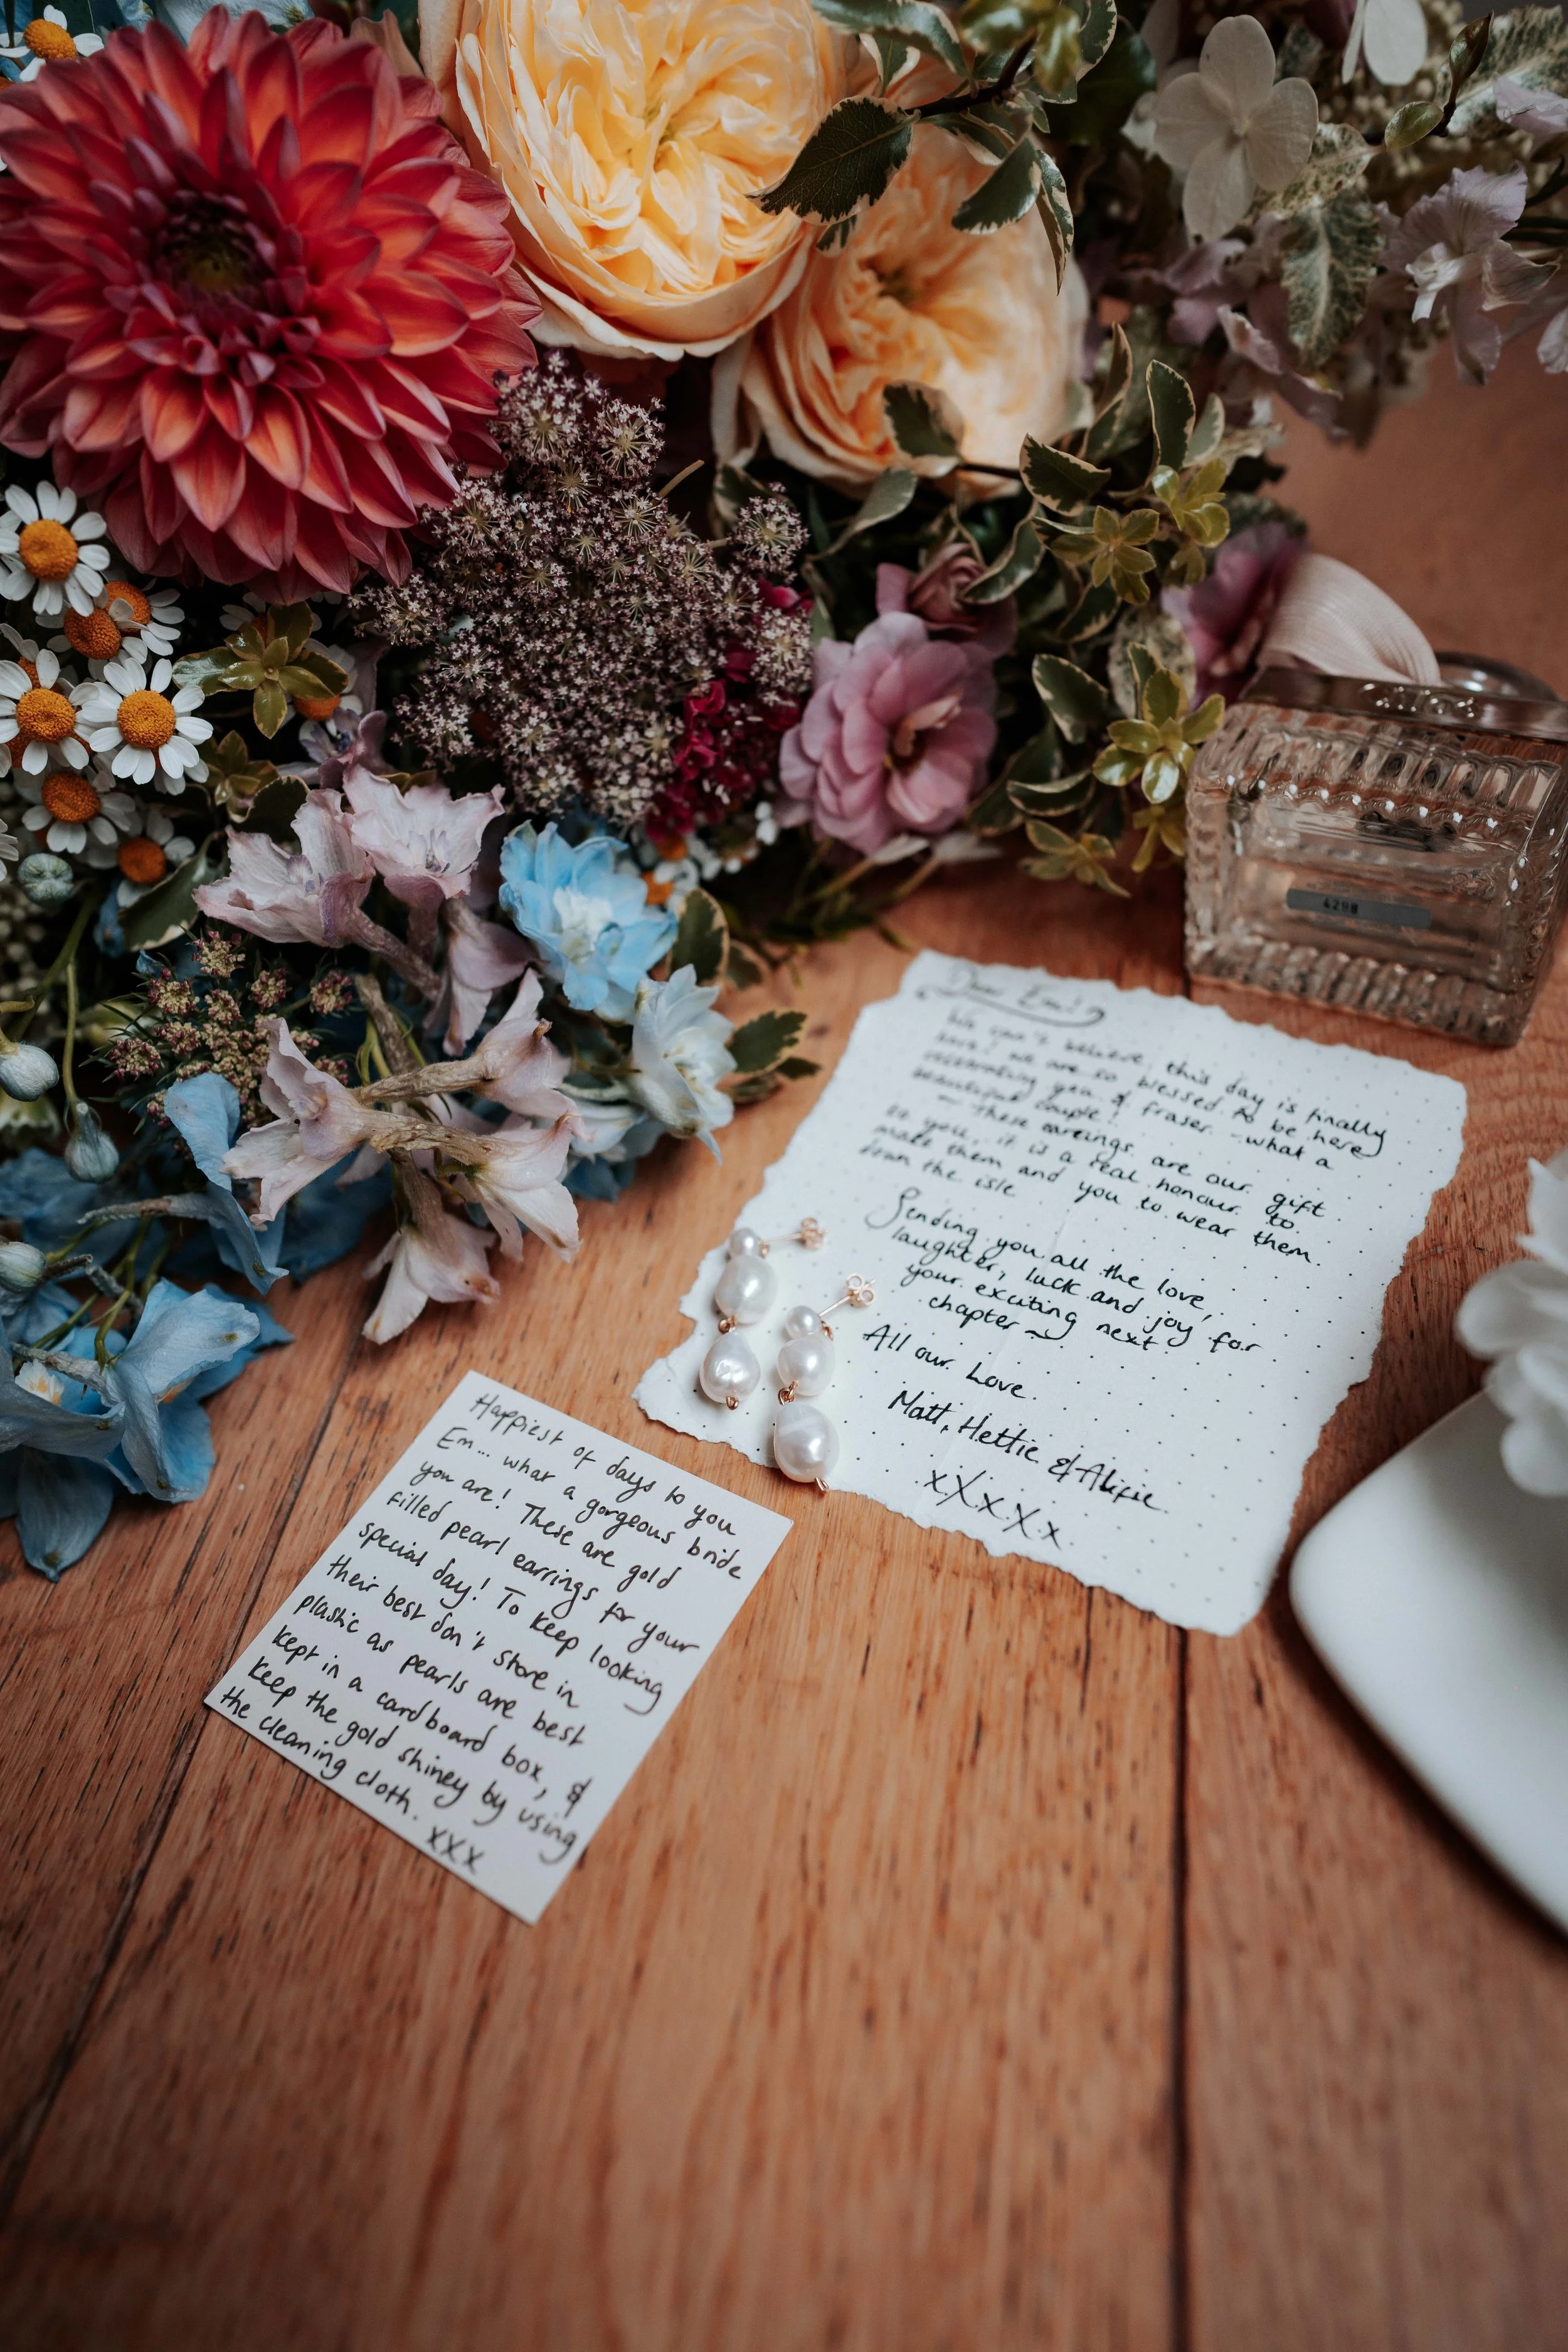 Dear Emi
We can't believe this day is finally
here! we are so blessed to be here
celebrating you & Fraser - what a
beautiful couple!
- These earrings are our gift
to you, it is a real honour to
make them and you to wear them
down the isle
Sending you all the love,
laughter, luck and joy for
your exciting next
chapter ~
All our Love.
Matt, Hettie &
xXxXx
Happiest of days to you
Em... what a gorgeous bride
you are! These are gold
filled pearl earrings for your
special day! To keep looking
their best don't store in
plastic as pearls are best
kept in a cardboard box, &
keep the gold shiney by using
the cleaning cloth. xxx
4298